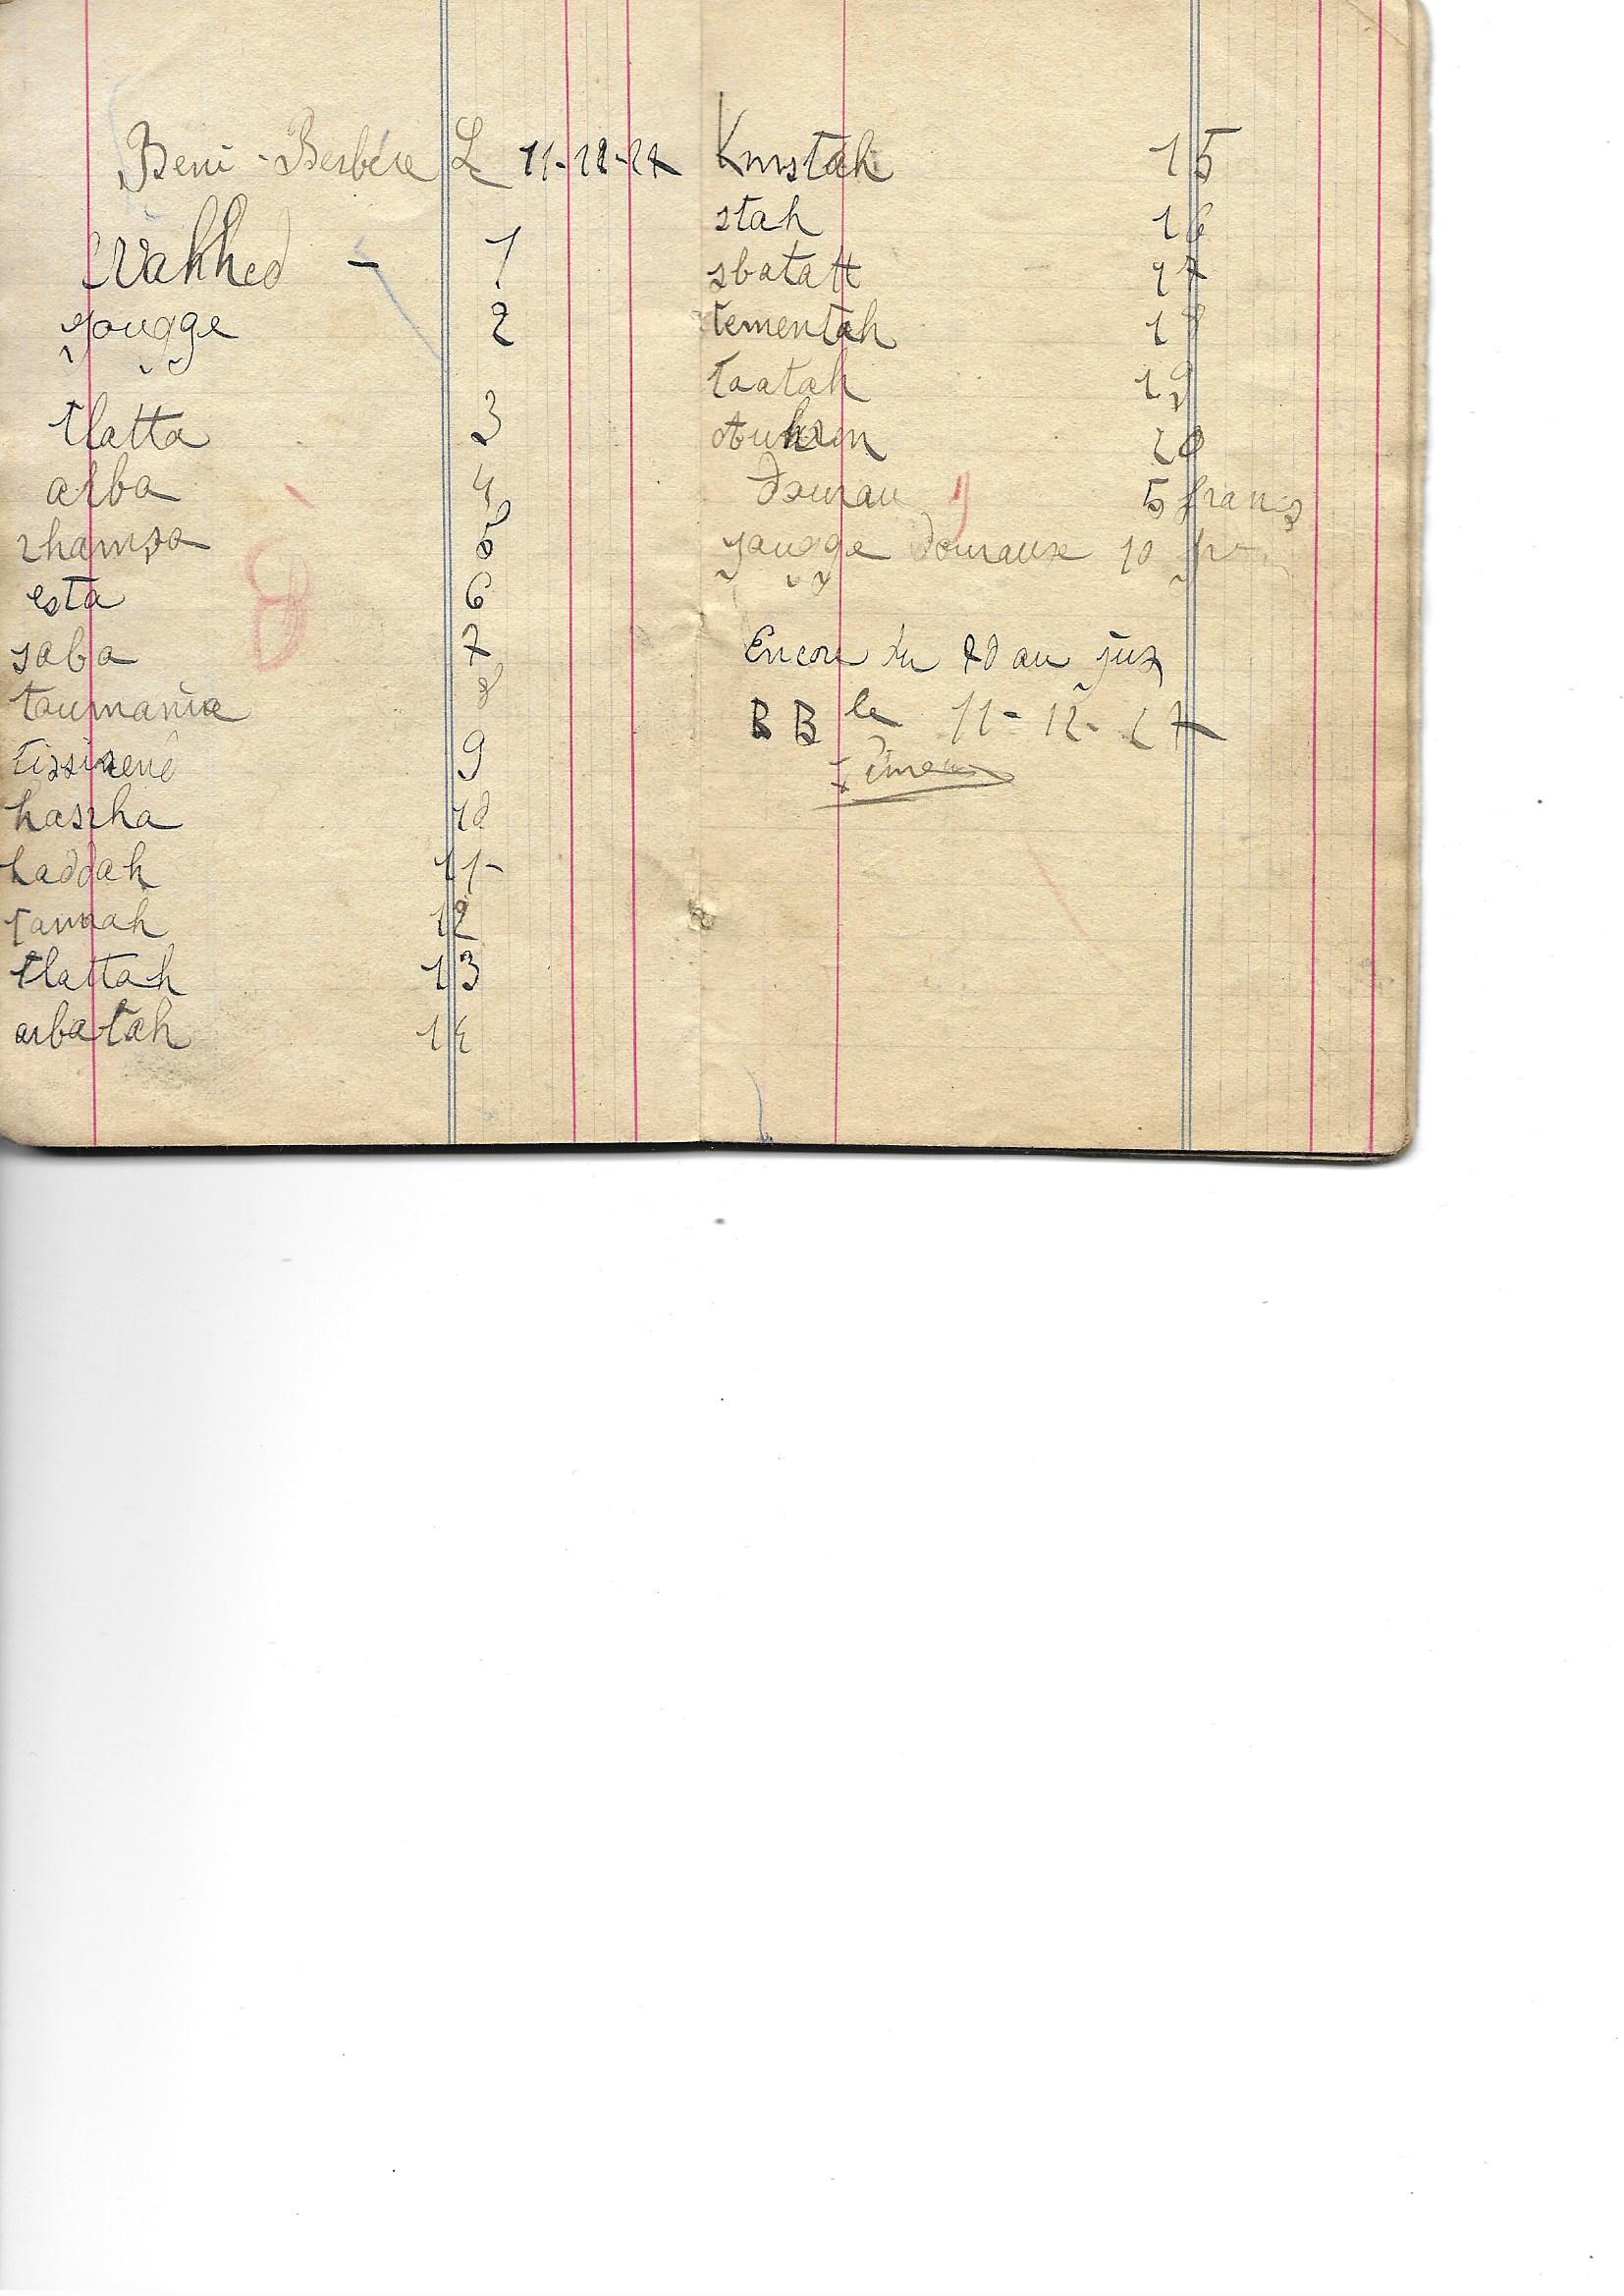 Beni-Berbère Le 11-12-27
Wakhed - 1
gougge 2
tlatta 3
arba 4
rhamsa 5
esta 6
saba 7
toumania 8
9
hascha 10
haddah 11-
12
tlattah 13
arbatah 14
Kmstah 15
stah 16
sbatatt 17
tementah 18
taatah 19
20
dourau 5 francs
gougge douraux 10 fr
Encore du 20 au jus
BB le 11-12-27